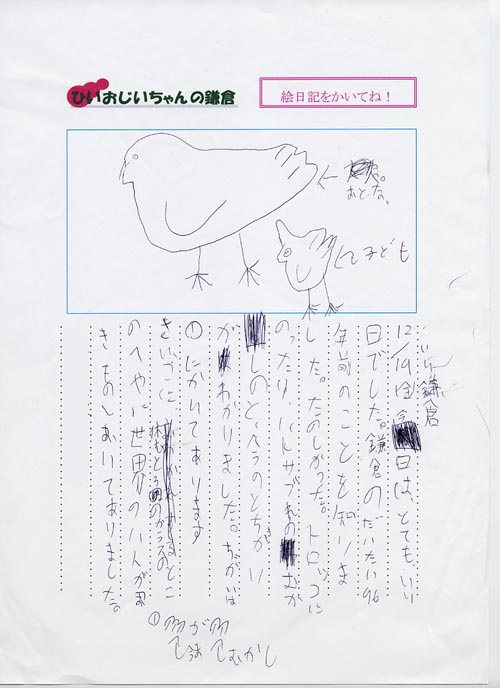 ひいおじいちゃんの鎌倉
絵日記をかいてね！
←おとな。
←子ども
いい鎌倉
12/19金 今日は、とても、いい
日でした。鎌倉のだいたい96
年前のことを知りま
した。たのしかった。トロッコに
のったり ハトサブレのむか
しのと、今のとちがい
がわかりました。ちがいは
①にかいてあります
さいごに、
のへやに世界の人が
きものしおいてありました。
①
むかし